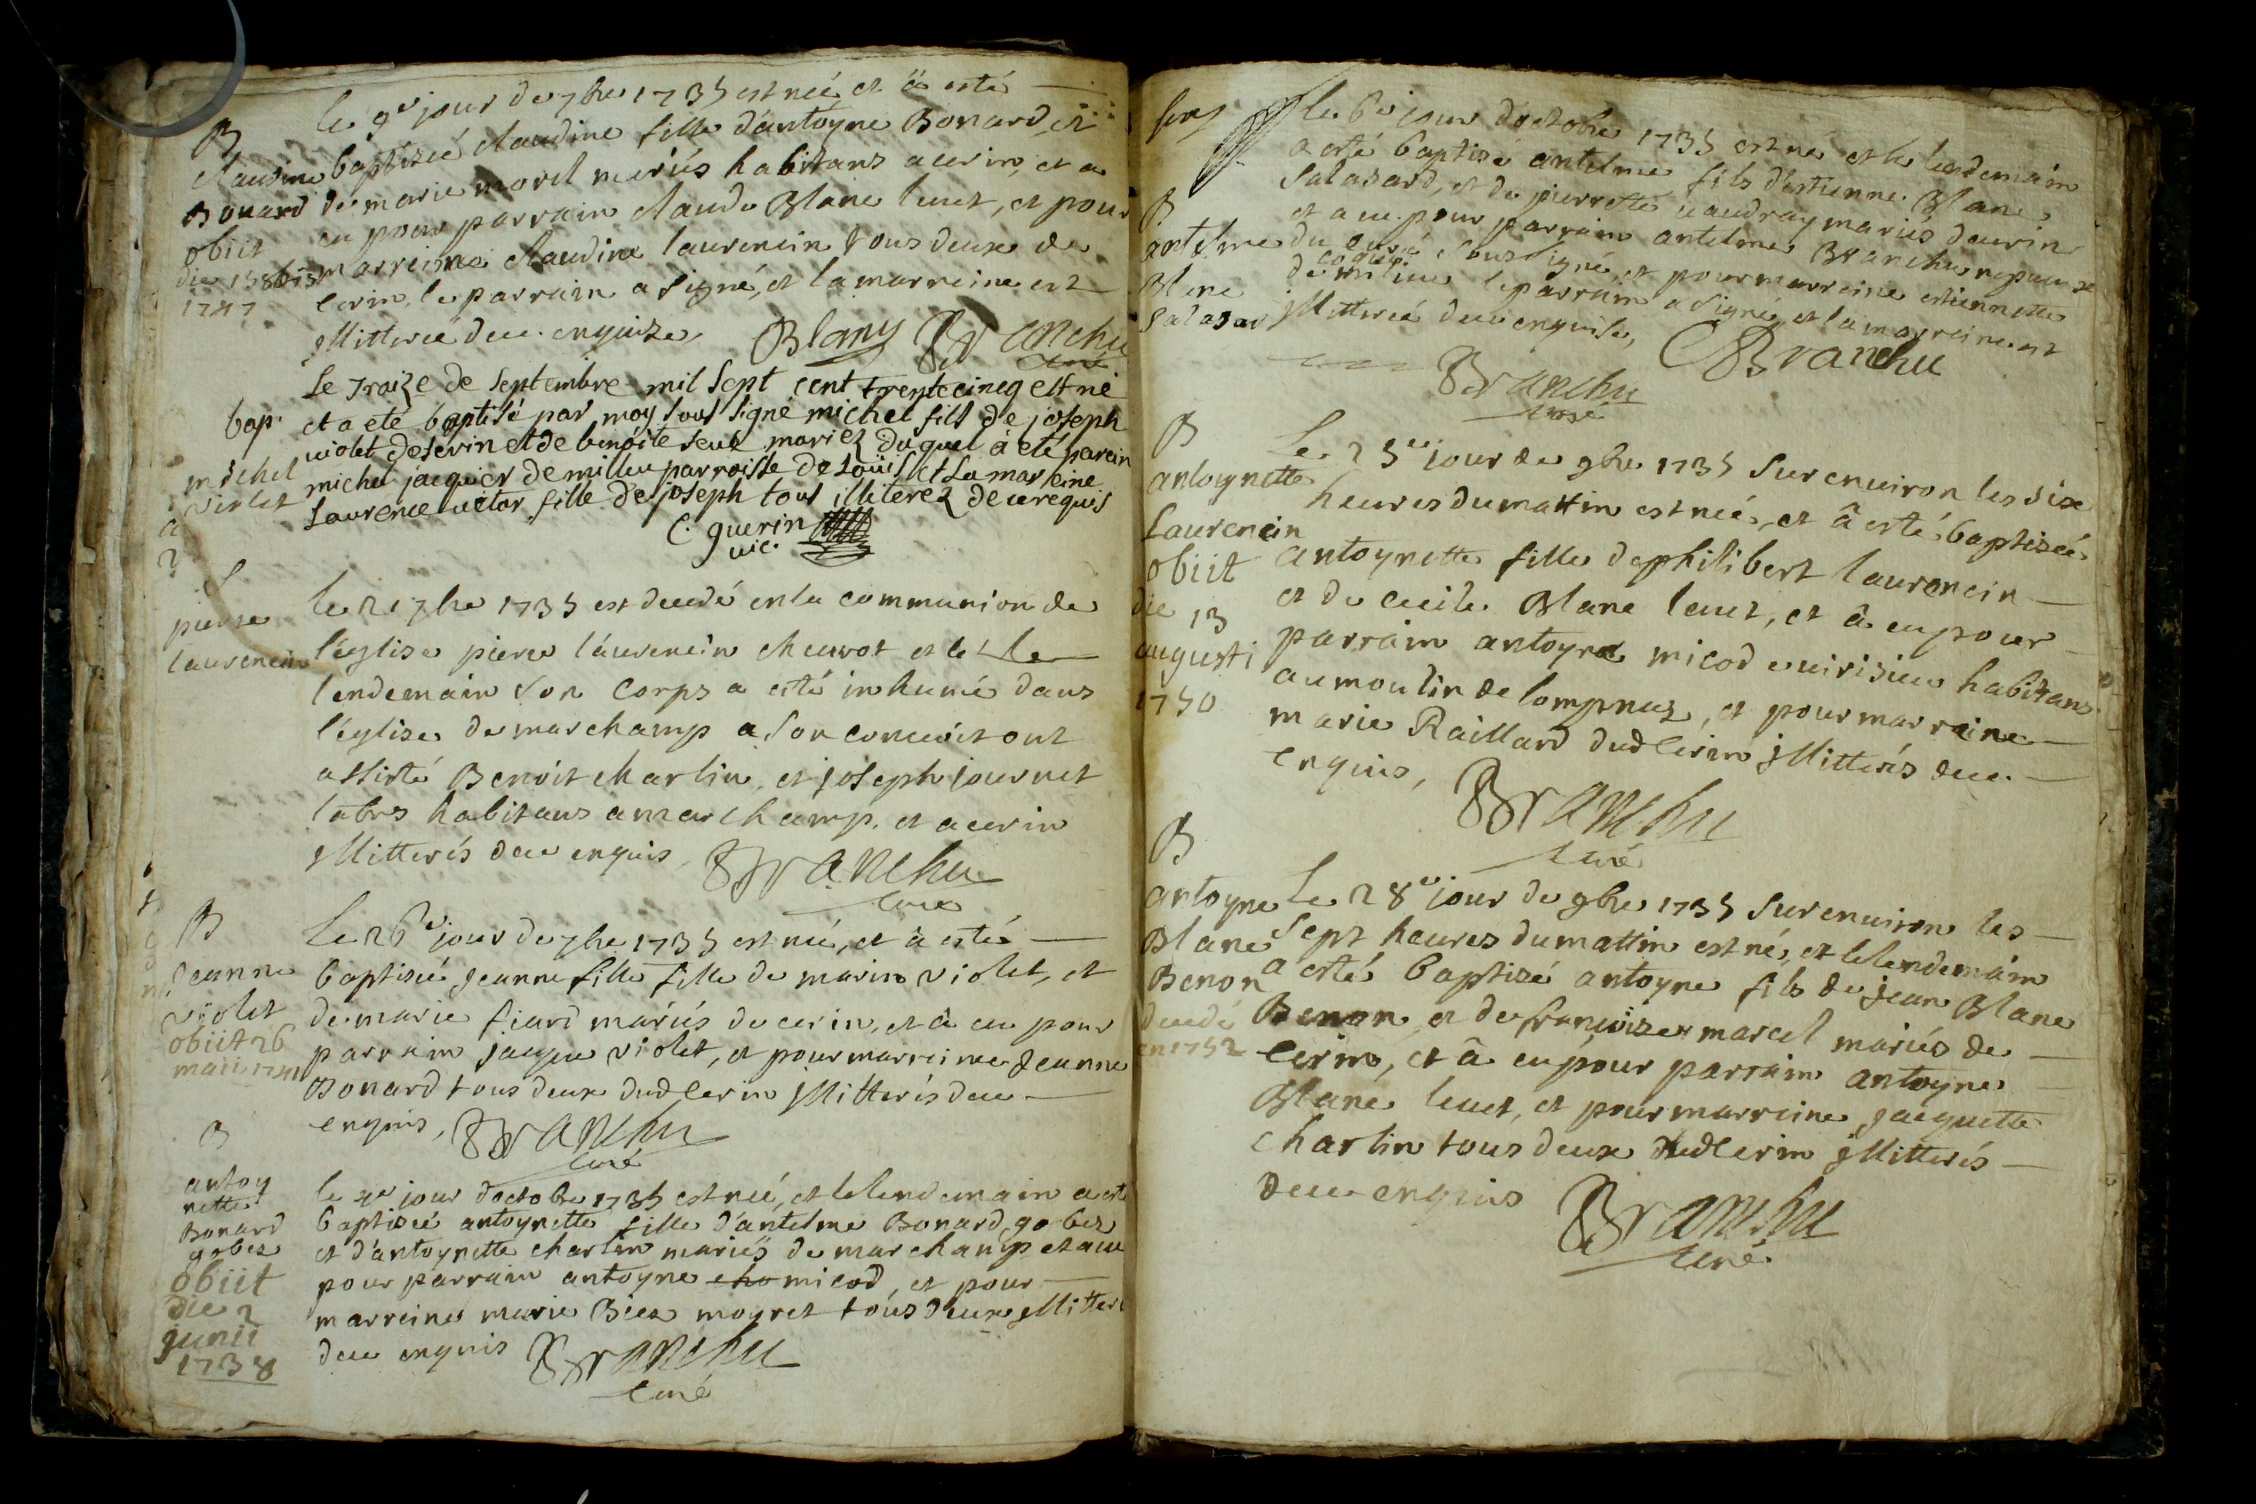 B
Claudine
Bonard
obiit
die 13 8bris
1747
le 9e jour de 7bre 1735 est neé et â esté
baptiseé claudine fille d'antoyne Bonard, et
de marie morel mariés habitans a cerin, et a
eu pour parrain claude Blanc leuet, et pour
marreine claudine laurencin tous deux de
cerin, le parrain a signé, et la marreine est
illitereé de ce enquise
Blanc Branchu
curé
bap.
michel
violet
Le Traize de septembre mil sept cent trente cincq est né
et a eté baptisé par moy sous signé michel fils de joseph
violet de serin et de benoite seux mariez duquel à eté parein
michel jacquier de millieu parroisse de Loüis et La mareine
Laurence victor fille de joseph tous illiterez de ce requis
C. guerin
vic.
pierre
laurencin
le 21 7bre 1735 est decedé en la communion de
l'eglise pierre laurencin cheurot et le
lendemain son corps a esté inhumé dans
l'eglise de marchamp a son convoit ont
assisté Benoit charlin, et joseph journet
labrs habitans a marchamp, et a cerin
illitterés de ce enquis Branchu
curé
B
Jeanne
violet
obiit 26
maii 1741
Le 26e jour de 7bre 1735 est neé, et â esté
baptiseé jeanne fille fille de marin violet, et
de marie fiard mariés de cerin, et â eu pour
parrain jaque violet, et pour marreine jeanne
Bonard tous deux dud Cerin illitterés de ce
enquis, Branchu
curé
B
antoy
nette
Bonard
gobez
obiit
die 2
junii
1738
le 4e jour d'octobre 1735 est neé, et le lendemain a esté
baptiseé antoynette fille d'antelme Bonard, gobez
et d'antoynette charlin mariés de marchamp et a eu
pour parrain antoyne cha micod, et pour
marreine marie Biez moyret tous deux illitter
de ce enquis Branchu
curé
B
antelme
Blanc
Salazar
le 6e jour d'octobre 1735 est né et le lendemain
a esté baptisé antelme fils d'estienne Blanc
Salazard, et de pierrette mariés de cerin
et a eu pour parrain antelme Branchu
du curé soussigné, et pour marreine estiennette
le parrain a signé, et la marreine est
illittereé de ce enquise,
Branchu
Branchu
curé
B
antoynette
Laurencin
obiit
die 13
augusti
1750
Le 25e jour de 9bre 1735 sur environ les six
heures du mattin est neé, et â esté baptiseé
antoynette fille de philibert laurencin
et de cecile Blanc leuet, et â eu pour
parrain antoyne micod cuirisieu habitans
au moulin de lompnaz, et pour marreine
marie Raillard dud Cerin illitterés de ce
enquis, Branchu
curé
B
antoyne
Blanc
Benon
decedé
en 1752
Le 28e jour de 9bre 1735 sur environ les
sept heures du mattin est né, et le lendemain
a esté baptisé antoyne fils de jean Blanc
Benon, et de françoise marcel mariés de
Cerin, et â eu pour parrain antoyne
Blanc leuet, et pour marreine jaquette
charlin tous deux dud Cerin illitterés
de ce enquis Branchu
curé